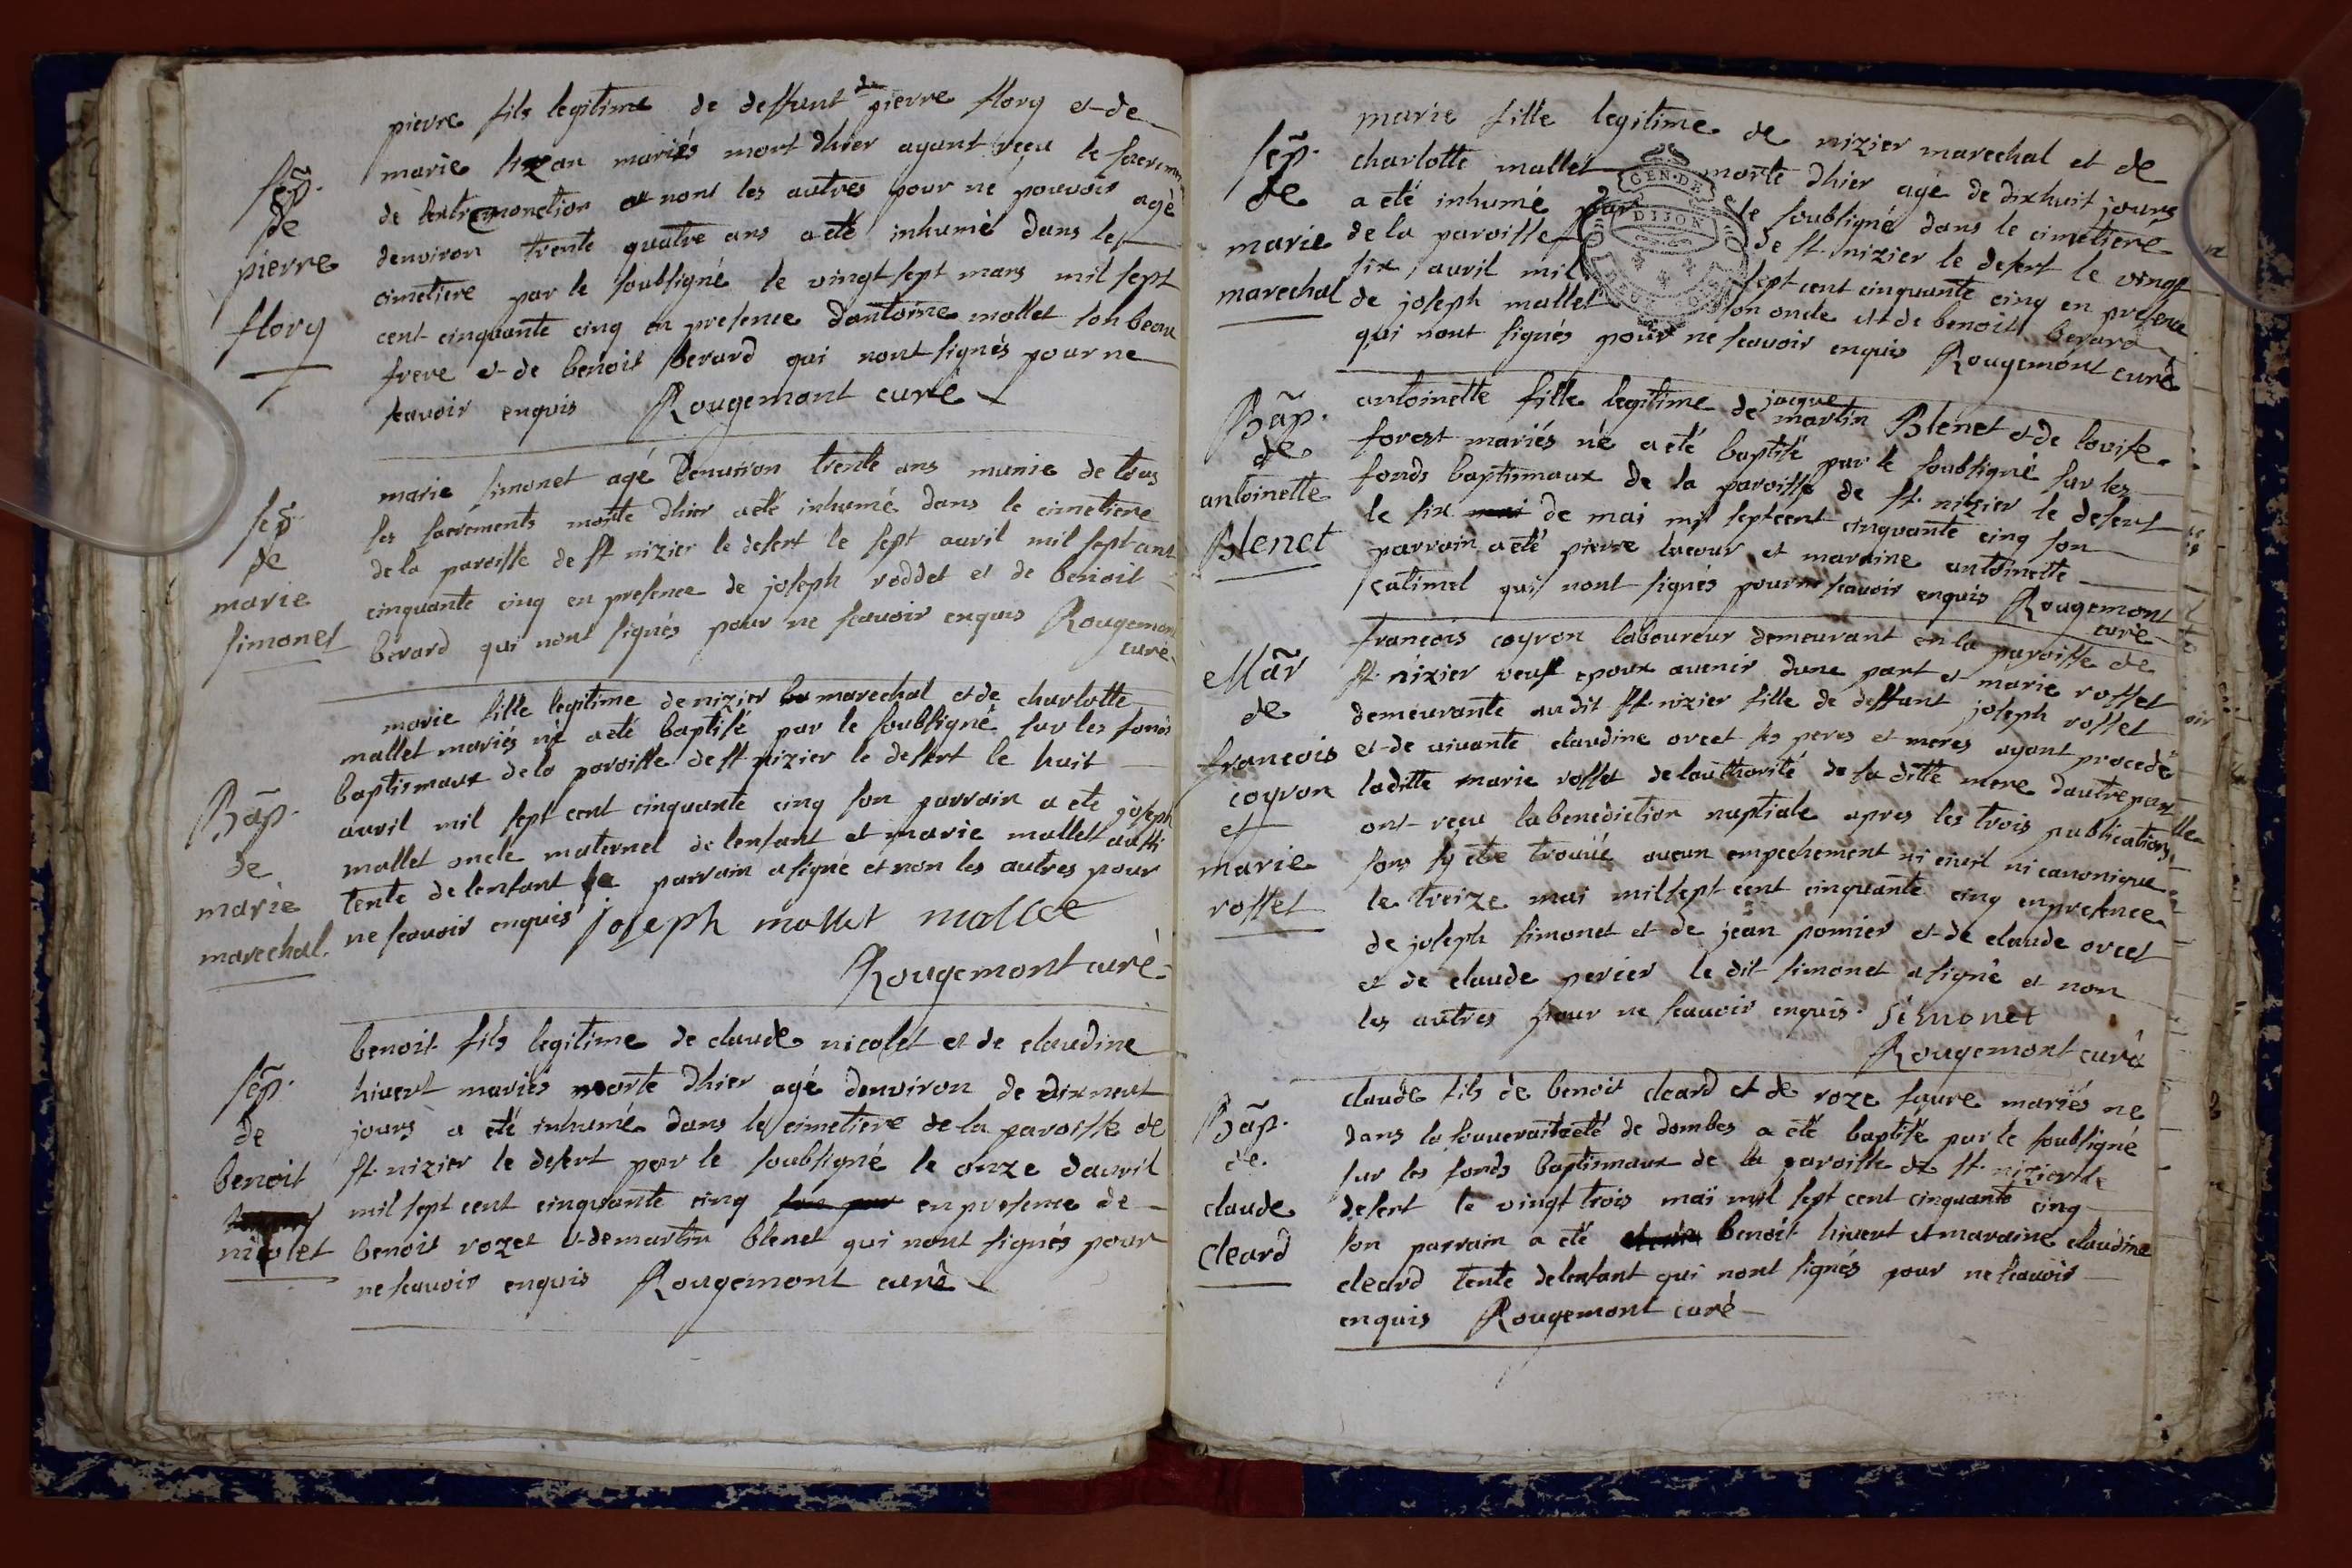 pierre fils legitime de deffunt pierre flory et de
marie mariés mort dhier ayant reçu le
de lextremonction et nont les autres pour ne pouvoir agé
denviron trente quatre ans a eté inhumé dans le
cimetiere par le soubsigné le vingt sept mars mil sept
cent cinquante cinq en presence dantoine mallet son beau
frere et de benoit berard qui nont signés pour ne
scavoir enquis Rougemont curé
sep.
de
pierre
flory
marie simonet agé denviron trente ans munie de tous
ses sacrements morte dhier a eté inhumé dans le cimetiere
de la paroisse de st nizier le desert le sept avril mil sept cent
cinquante cinq en presence de joseph roddet et de benoit
berard qui nont signés pour ne scavoir enquis Rougemont
curé
sep.
de
marie
simonet
marie fille legitime de nizier marechal et de charlotte
mallet mariés né a eté baptisé par le soubsigné sur les fonds
baptismaux de la paroisse de st nizier le desert le huit
avril mil sept cent cinquante cinq son parrain a eté joseph
mallet oncle maternel de lenfant et marie mallet aussi
tente de lenfant le parrain a signé et non les autres pour
ne scavoir enquis joseph mallet mallet
Rougemont curé
Bap.
de
marie
marechal.
benoit fils legitime de claude nicolet et de claudine
hivert mariés morte dhier agé denviron de dixneuf
jours a eté inhumé dans le cimetiere de la paroisse de
st. nizier le desert par le soubsigné le onze davril
mil sept cent cinquante cinq en presence de
benoit rozet et de martin blenet qui nont signés pour
ne scavoir enquis Rougemont curé
sep.
de
benoit
nicolet
marie fille legitime de nizier marechal et de
charlotte mallet morte dhier agé de dixhuit jours
a eté inhumé par le soubsigné dans le cimetiere
de la paroisse de st. nizier le desert le vingt
six avril mil sept cent cinquante cinq en presence
de joseph mallet son oncle et de benoit berard
qui nont signés pour ne scavoir enquis Rougemont curé
sep.
de
marie
marechal
GEN. DE
DIJON
antoinette fille legitime de jacque martin Blenet et de louise
forest mariés né a eté baptisé par le soubsigné sur les
fonds baptismaux de la paroisse de st. nizier le desert
le six de mai mil sept cent cinquante cinq son
parrain a eté pierre lacour et maraine antoinette
catimel qui nont signés pour ne scavoir enquis Rougemont
curé
Bap.
de
antoinette
Blenet
francois coyron laboureur demeurant en la paroisse de
st. nizier veuf epoux avenir dune part et marie rosset
demeurante audit st. nizier fille de deffunt joseph rosset
et de vivante claudine orcet ses peres et meres ayant procedé
laditte marie rosset de lauthorité de sa ditte mere dautre part
ont reçu la benediction nuptiale apres les trois publications
sans sy etre trouvé aucun empechement ni civil ni canonique
le treize mai mil sept cent cinquante cinq en presence
de joseph simonet et de jean pomier et de claude orcet
et de claude perier le dit simonet a signé et non
les autres pour ne scavoir enquis. Simonet
Rougemont curé
Mar
de
francois
coyron
et
marie
rosset
claude fils de benoit cleard et de roze faure mariés ne
dans la souveraineté de dombes a eté baptisé par le soubsigné
sur les fonds baptismaux de la paroisse de st. nizier le
desert le vingt trois mai mil sept cent cinquante cinq
son parrain a eté benoit hivert et maraine claudine
cleard tente de lenfant qui nont signés pour ne scavoir
enquis Rougemont curé
Bap.
de
claude
cleard